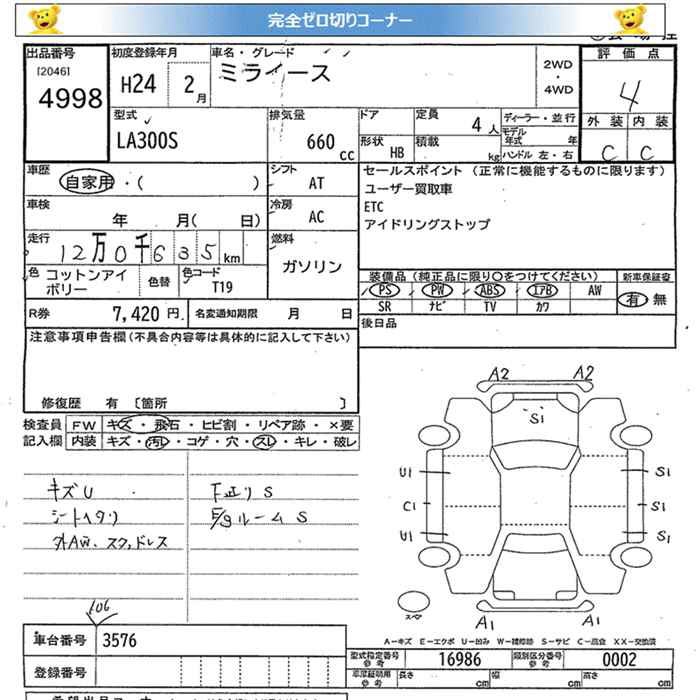 完全ゼロ切りコーナー
出品番号
[2046]
4998
初度登録年月
H24
2月
車名・グレード
ミライース
2WD
・
4WD
評価点
4
外装 内装
C C
型式
LA300S
排気量
660
cc
ドア
定員
4人
形状
HB
積載
kg
ディーラー・並行
モデル年式 年
ハンドル 左・右
車歴
自家用・( )
シフト
AT
車検
年 月( 日)
冷房
AC
走行
12万0千635km
燃料
ガソリン
色
コットンアイボリー
色替
色コード
T19
R券 7,420円
名変通知期限 月 日
セールスポイント (正常に機能するものに限ります)
ユーザー買取車
ETC
アイドリングストップ
装備品(純正品に限り〇をつけてください)
新車保証書
PS PW ABS エアB AW
SR ナビ TV カワ
有 無
後日品
注意事項申告欄(不具合内容等は具体的に記入して下さい)
修復歴 有 〔箇所 〕
検査員
記入欄
FW キズ・飛石・ヒビ割・リペア跡・×要
内装 キズ・汚レ・コゲ・穴・スレ・キレ・破レ
キズU
シートヘタリ
外AW、スタッドレス
下廻りS
E/gルームS
A2 A2
S1
U1 S1
C1 S1
U1 S1
スペア
A1 A1
106
車台番号 3576
登録番号
A-キズ E-エクボ U-凹み W-補修跡 S-サビ C-腐食 XX-交換済
型式指定番号
参考
16986
類別区分番号
参考
0002
車庫証明用
参考
長さ cm
幅 cm
高さ cm